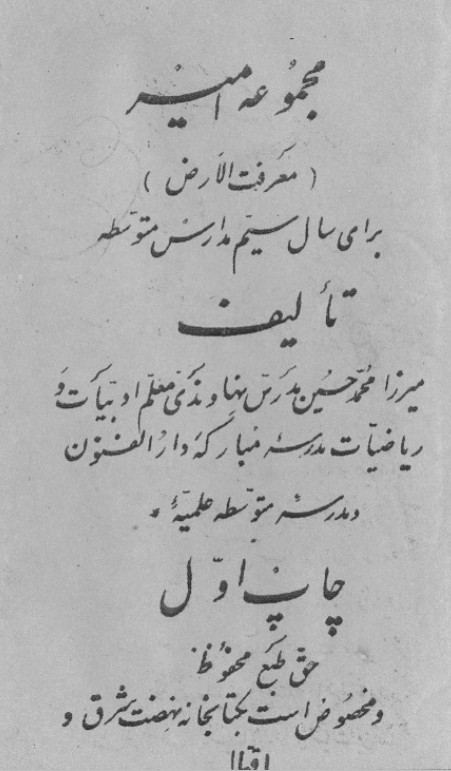 مجموعه امیر
( معرفت الأرض )
برای سال سیّم مدارس متوسّطه
تألیف
میرزا محمّد حسین مدرّس نهاوندی معلّم ادبیّات و
ریاضیّات مدرسهٔ مبارکهٔ دار الفنون
و مدرسهٔ متوسّطه علمیّهٔ
چاپ اوّل
حقّ طبع محفوظ
و مخصوص است بکتابخانه نهضت شرق و
اقبال